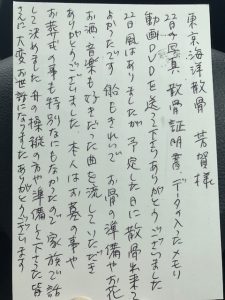 東京海洋散骨　芳賀様
22日の写真 散骨証明書 データの入ったメモリ
動画DVDを送って下さりありがとうございました
22日風はありましたが 予定した日に散骨出来て
よかったです 船もきれいで お骨の準備やお花
お酒 音楽も好きだった曲を流していただき
ありがとうございました 本人はお墓の事や
お葬式の事も特別なにもなかったので 家族で話
して決めました 舟の操縦の方や準備して下さった皆
さんに大変お世話になりましたありがとうございます